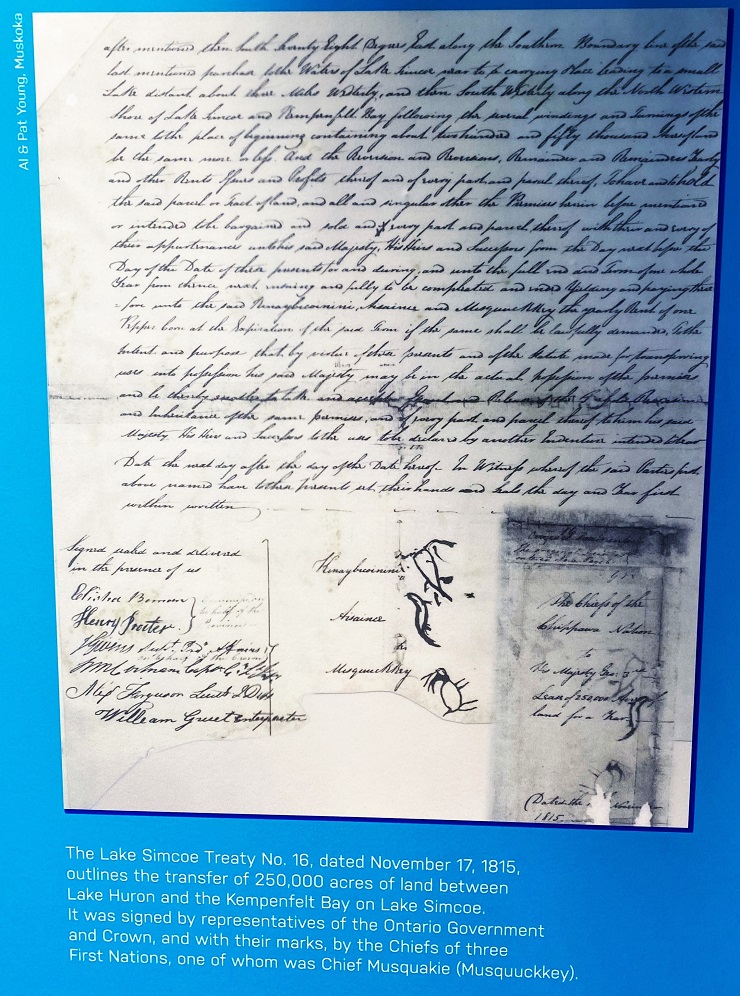 Al & Pat Young, Muskoka
after mentioned then South Seventy Eight Degrees East along the Southern Boundary line of the said
last mentioned purchase to the Waters of Lake Simcoe near to a carrying Place leading to a small
Lake distant about three Miles Westerly, and then South Westerly along the North Western
Shore of Lake Simcoe and Kempenfelt Bay following the several windings and Turnings of the
same to the place of beginning containing about two hundred and fifty thousand Acres of land
be the same more or less. And the Reversion and Reversions, Remainder and Remainders Yearly
and other Rents Issues and Profits thereof and of every part and parcel thereof, To have and to hold
the said parcel or Tract of land, and all and singular other the Premises herein before mentioned
or intended to be bargained and sold and every part and parcel thereof with their and every of
their appurtenances unto his said Majesty, His Heirs and Successors from the Day next before the
Day of the Date of these presents for and during, and unto the full end and Term of one whole
Year from thence next ensuing and fully to be compleated and ended Yielding and paying there
=fore unto the said Kinaybicoinini, Aisaince and Misquuckkey the yearly Rent of one
Pepper Corn at the Expiration of the said Term if the same shall be lawfully demanded, to the
Intent and purpose that by virtue of these presents and of the Statute made for transferring
uses into possession his said Majesty may be in the actual possession of the premises
and be thereby enabled to take and accept a Grant and Release of the
and Inheritance of the same premises, and of every part and parcel thereof to him his said
Majesty His Heirs and Successors to the uses to be declared by another Indenture intended to bear
Date the next day after the day of the Date hereof— In Witness whereof the said Parties first
above named have to these Presents set their hands and seals the day and Year first
within written
Signed sealed and delivered
in the presence of us
Elisha Beman
Henry Proctor
J Givins Supt. Ind. Affairs
Alexr Ferguson Lieut I Dept
William Gruet Interpreter
Kinaybicoinini
Aisaince
Misquuckkey
The Chiefs of the
Chippawa Nation
to
His Majesty Geo. 3rd
Lease of 250,000 Acres of
land for a Year
Dated the
1815
The Lake Simcoe Treaty No. 16, dated November 17, 1815,
outlines the transfer of 250,000 acres of land between
Lake Huron and the Kempenfelt Bay on Lake Simcoe.
It was signed by representatives of the Ontario Government
and Crown, and with their marks, by the Chiefs of three
First Nations, one of whom was Chief Musquakie (Musquuckkey).